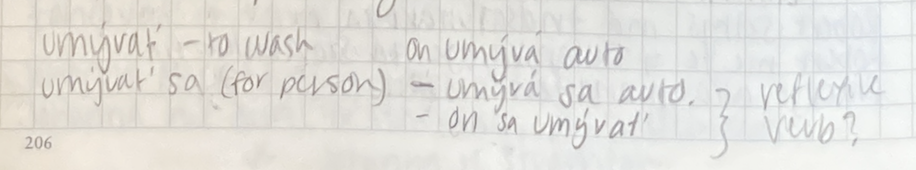 umývať - to wash on umývá auto
umývať sa (for person) - umývá sa auto. } reflexive
- on sa umývať } verb?
206